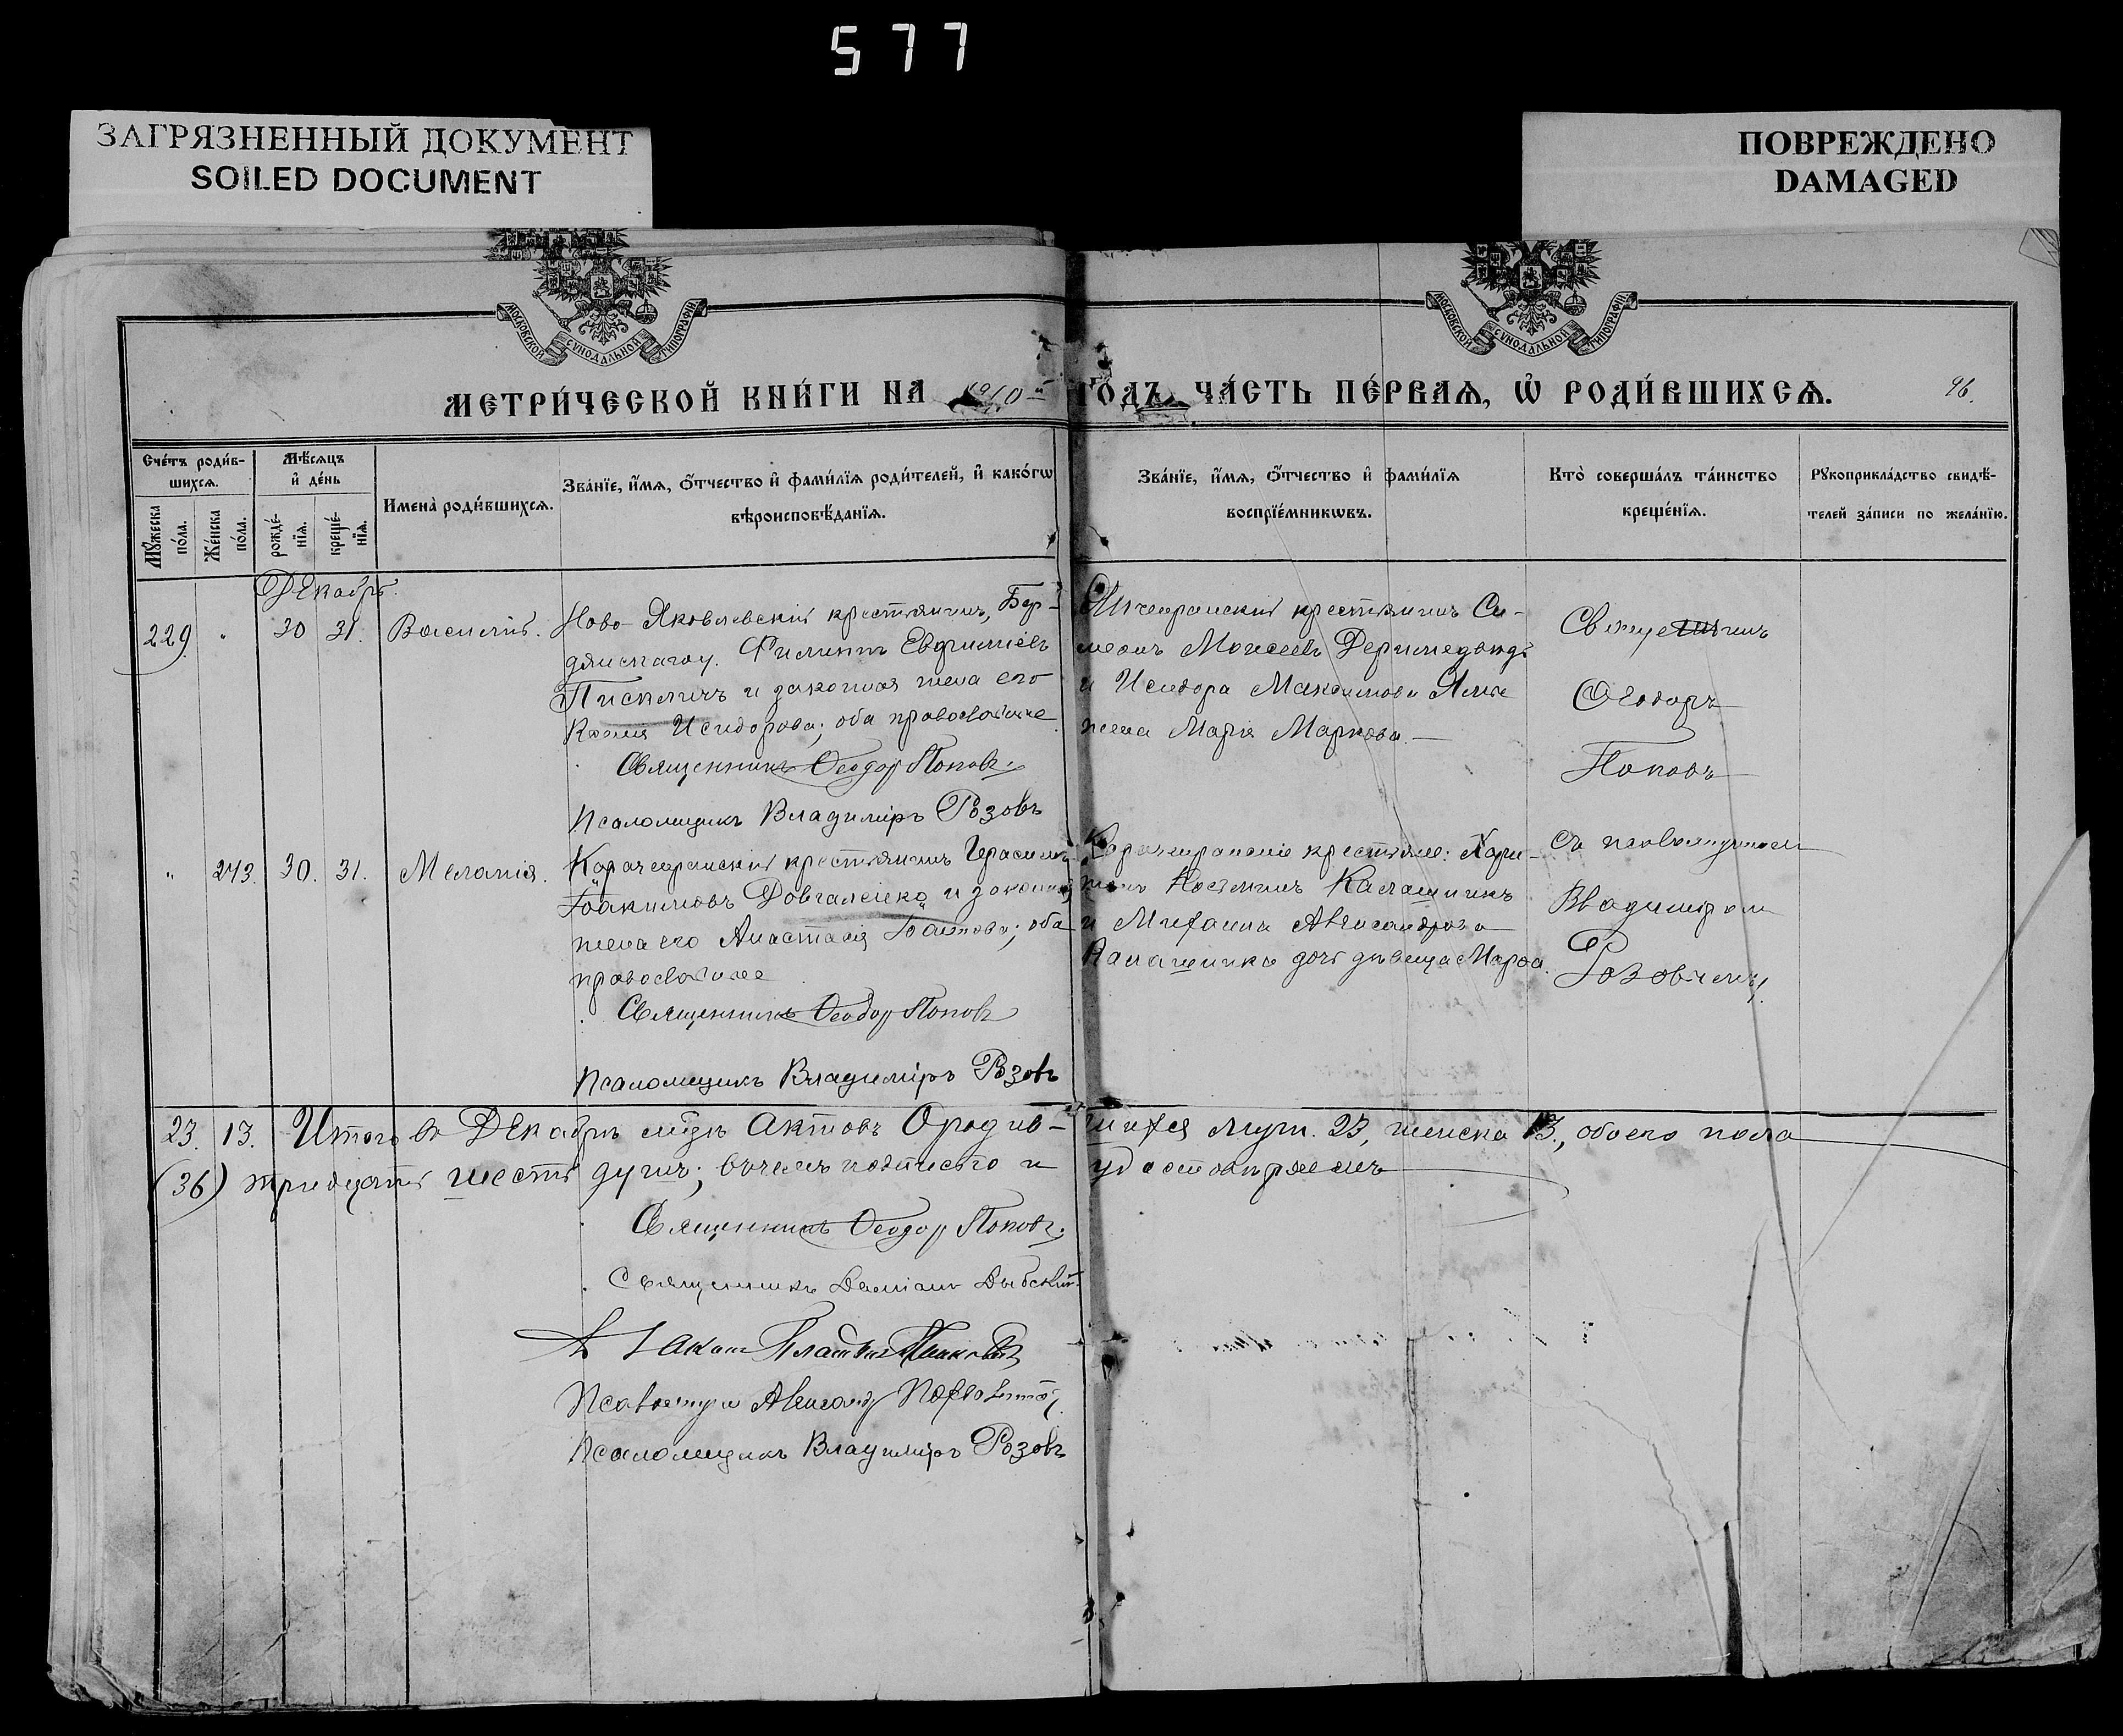 577
ЗАГРЯЗНЕННЫЙ ДОКУМЕНТ
SOILED DOCUMENT
ПОВРЕЖДЕНО
DAMAGED
МОСКОВСКОЙ СУНОДАЛЬНОЙ ТИПОГРАФІИ
МОСКОВСКОЙ СУНОДАЛЬНОЙ ТИПОГРАФІИ
МЕТРИ́ЧЕСКОЙ КНИ́ГИ НА 1910 ГОДЪ, ЧА́СТЬ ПЕ́РВАѦ, Ѽ РОДИ́ВШИХСѦ.
96.
Сче́тъ роди́в-
шихсѧ.
Мꙋ́жеска по́ла.
Же́нска по́ла.
Мѣ́сѧцъ
и҆ де́нь
рожде́-
нїѧ.
креще́-
нїѧ.
Имена̀ роди́вшихсѧ.
Зва́нїе, и҆́мѧ, ѻ҆́тчество и҆ фами́лїѧ роди́телей, и҆ како́гѡ
вѣроисповѣ́данїѧ.
Зва́нїе, и҆́мѧ, ѻ҆́тчество и҆ фами́лїѧ
воспрїе́мникѡвъ.
Кто̀ соверша́лъ та́инство
креще́нїѧ.
Рꙋкоприкла́дство свидѣ́-
телей за́писи по жела́нїю.
Декабрь.
229. " 30 31. Василій.
Ново-Яковлевскій крестьянинъ, Бер-
дянскаго у. Филиппъ Евфиміевъ
и законная жена его
Ксенія Исидорова; оба православные
Священникъ Ѳеодоръ Поповъ.
Псаломщикъ Владиміръ Розовъ
крестьянинъ Си-
меонъ Моисеевъ
и Исидора Максимова
жена Марія Маркова.
Священникъ
Ѳеодоръ
Поповъ
" 243. 30. 31. Меланія.
крестьянинъ Герасимъ
Іоакимовъ Довгаленко и законная
жена его Анастасія; оба
православные
Священникъ Ѳеодоръ Поповъ
Псаломщикъ Владиміръ Розовъ
крестьяне: Хари-
тонъ Калашникъ
и Михаила Александрова
Калашника дочь дѣвица Марѳа.
съ псаломщикомъ
Владиміромъ
Розовымъ.
23. 13. Итого въ Декабрѣ м-цѣ актовъ о родив-шихся муж. 23, женска 13., обоего пола
(36) тридцать шесть душъ; въ чемъ подписью и удостовѣряемъ
Священникъ Ѳеодоръ Поповъ.
Священникъ Даміанъ
Псаломщикъ Владиміръ Розовъ